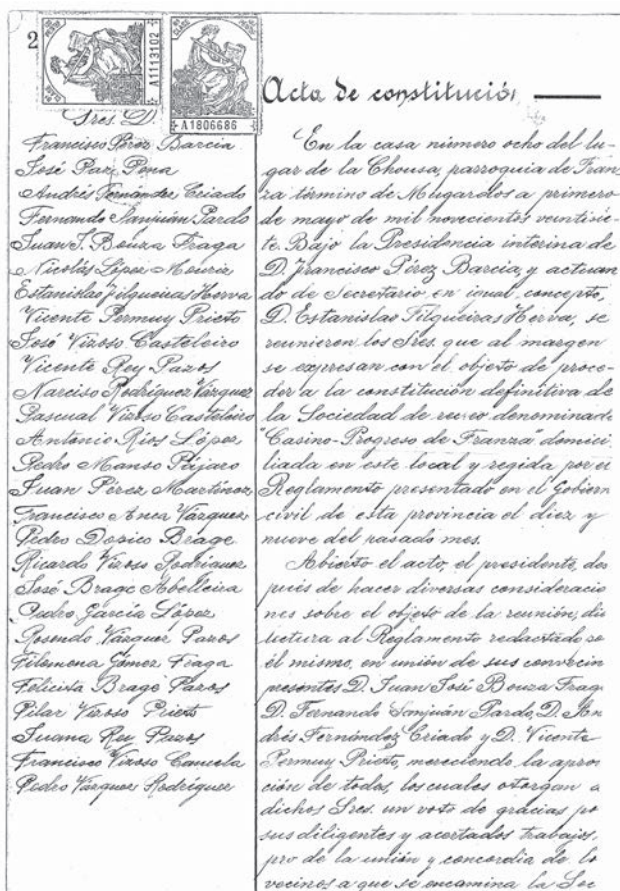 2
A1113102
A1806686
Acta de constitución
Sres. D.
Francisco Pérez Barcia
José Paz Pena
Andrés Fernández Criado
Fernando Sanjuán Pardo
Juan J. Bouza Fraga
Nicolás López Mouriz
Estanislao Filgueiras Herva
Vicente Permuy Prieto
José Vizoso Casteleiro
Vicente Rey Pazos
Narciso Rodríguez Vázquez
Pascual Vizoso Casteleiro
Antonio Ríos López
Pedro Manso Pájaro
Juan Pérez Martínez
Francisco Anca Vázquez
Pedro Dopico Brage
Ricardo Vizoso Rodríguez
José Brage Abelleira
Pedro García López
Rosendo Vázquez Pazos
Filomena Gómez Fraga
Felicita Brage Pazos
Pilar Vizoso Prieto
Juana Rey Pazos
Francisco Vizoso Cancela
Pedro Vázquez Rodríguez
En la casa número ocho del lu-
gar de la Chousa, parroquia de Fran
za término de Mugardos a primero
de mayo de mil novecientos veintisie-
te. Bajo la Presidencia interina de
D. Francisco Pérez Barcia, y actuan
do de Secretario, en igual concepto,
D. Estanislao Filgueiras Herva, se
reunieron los Sres. que al margen
se expresan con el objeto de proce-
der a la constitución definitiva de
la Sociedad de recreo denominada
"Casino-Progreso de Franza" domici
liada en este local y regida por el
Reglamento presentado en el Gobiern
civil de esta provincia el diez y
nueve del pasado mes.
Abierto el acto, el presidente, des
pués de hacer diversas consideracio
nes sobre el objeto de la reunión, dió
lectura al Reglamento redactado po
él mismo, en unión de sus convecin
presentes D. Juan José Bouza Frag
D. Fernando Sanjuán Pardo, D. An
drés Fernández Criado y D. Vicente
Permuy Prieto, mereciendo la apro
ción de todos, los cuales otorgan a
dichos Sres. un voto de gracias po
sus diligentes y acertados trabajos,
pro de la unión y concordia de lo
vecinos a que se encamina la Soc